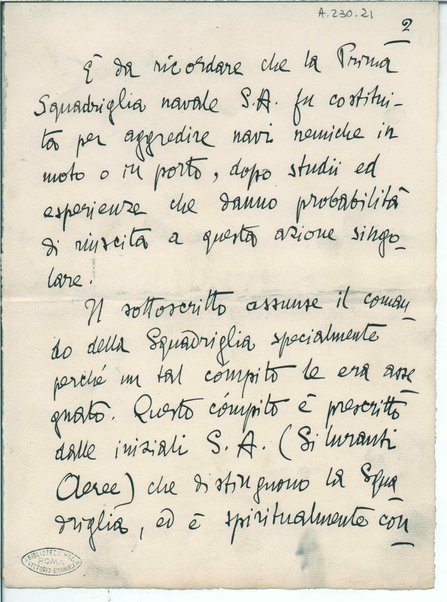 A.230.21
2
È da ricordare che la Prima
Squadriglia navale S.A. fu costitui-
ta per aggredire navi nemiche in
moto o in porto, dopo studii ed
esperienze che danno probabilità
di riuscita a questa azione singo-
lare.
Il sottoscritto assunse il coman-
do della Squadriglia specialmente
perché un tal cómpito le era asse
gnato. Questo cómpito è prescritto
dalle iniziali S.A. (Siluranti
Aeree) che distinguono la Squa
driglia, ed è spiritualmente con
BIBLIOTECA NAZ.
ROMA
VITTORIO EMANUELE